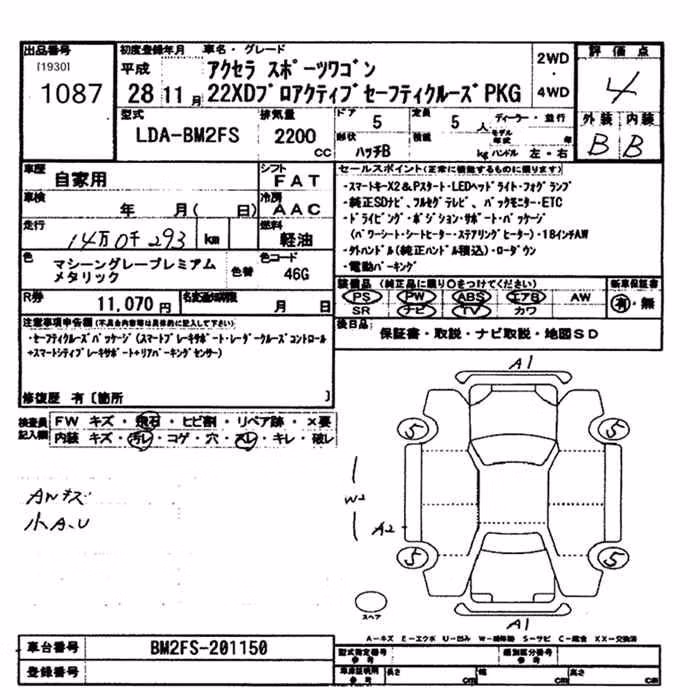 出品番号 初度登録年月 車名・グレード 評価点
[1930] 平成 アクセラ スポーツワゴン 2WD
・
1087 28 11月 22XDプロアクティブセーフティクルーズPKG 4WD 4
型式 排気量 ドア 5 定員 5 人 ディーラー・並行 外装 内装
LDA-BM2FS 2200 cc 形状 ハッチB 積載 kg モデル年式 年 ハンドル 左・右 B B
車歴 自家用 シフト FAT
車検 年 月( 日) 冷房 AAC
走行 14万0千293 km 燃料 軽油
色 マシーングレープレミアムメタリック 色替 色コード 46G
R券 11,070円 名変通知期限 月 日
セールスポイント(正常に機能するものに限ります)
・スマートキーX2&Pスタート・LEDヘッドライト・フォグランプ
・純正SDナビ、フルセグテレビ、バックモニター・ETC
・ドライビング・ポジション・サポート・パッケージ
(パワーシート・シートヒーター・ステアリングヒーター)・18インチAW
・外ハンドル(純正ハンドル積込)・ローダウン
・電動パーキング
装備品(純正品に限り○をつけてください) 新車保証書
PS PW ABS エアB AW 有・無
SR ナビ TV カワ
後日品 保証書・取説・ナビ取説・地図SD
注意事項申告欄(不具合内容等は具体的に記入して下さい)
・セーフティクルーズパッケージ(スマートブレーキサポート・レーダークルーズコントロール
+スマートシティブレーキサポート+リアパーキングセンサー)
修復歴 有〔箇所 〕
検査員記入欄 FW キズ・飛石・ヒビ割・リペア跡・×要
内装 キズ・汚レ・コゲ・穴・スレ・キレ・破レ
A1
5 5
W2
A2
5 5
スペア
A1
A-キズ E-エクボ U-凹み W-補修跡 S-サビ C-腐食 XX-交換済
車台番号 BM2FS-201150
登録番号
型式指定番号 参考 類別区分番号 参考
車庫証明用 参考 長さ cm 幅 cm 高さ cm